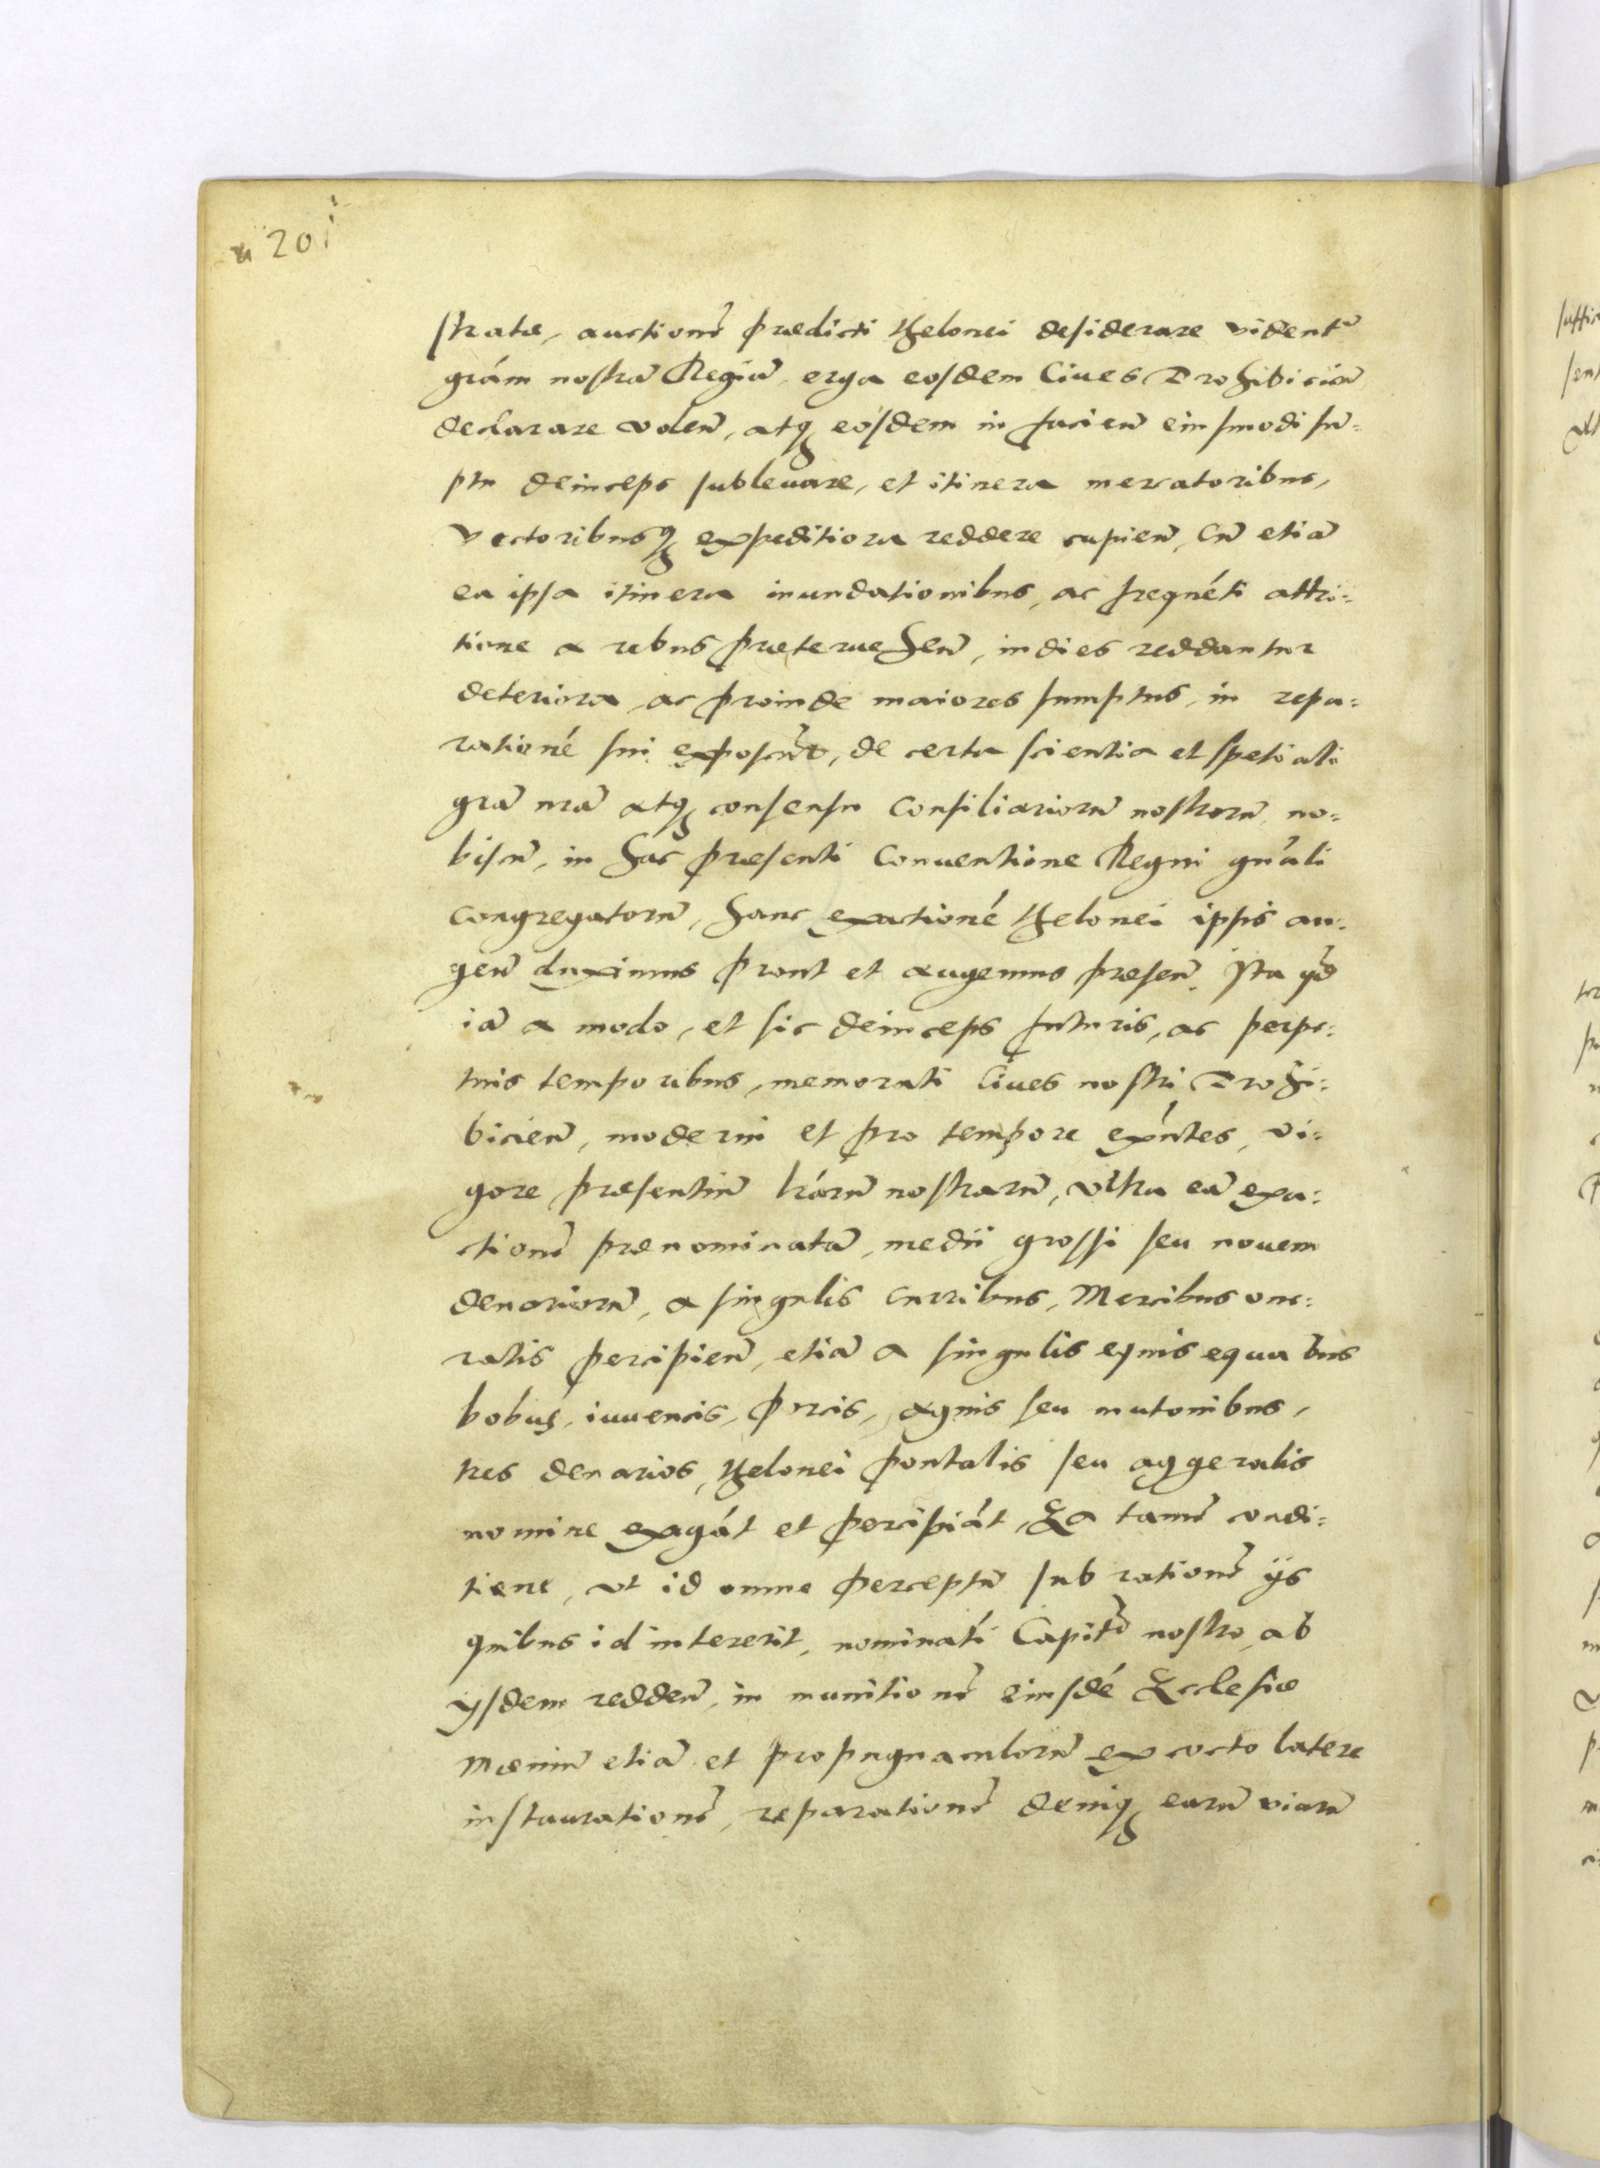 201
stratæ, auctionẽ prædicti thelonei desiderare vident᷑
grám nostrã Regiã, erga eosdem Ciues Drohibicieñ
declarare voleñ, atqꝫ eósdem in facieñ eiusmodi sũ=
ptu deinceps subleuare, et itinera mercatoribus,
vectoribusqꝫ expeditiora reddere cupieñ, Cũ etiã
ea ipsa itinera inundationibus, ac frequẽti attri=
tione a rebus præterueheñ, indies reddantur
deteriora, ac proinde maiores sumptus, in repa=
rationé sui exposcũt, de certa scientia et spetiali
grã nrã atqꝫ consensu Consiliariorũ nostrorũ, no=
biscũ, in hac præsenti Conuentione Regni gñali
congregatorũ, hanc exactioné thelonei ipsis au=
geñ duximus prout et augemus preseñ. Ita qđ
iã a modo, et sic deinceps futuris, ac perpe=
tuis temporibus, memorati Ciues nostri Drohi=
bicieñ, moderni et pro tempore exñtes, vi=
gore præsentiũ lrárũ nostrarũ, vltra eã exa=
ctionẽ prænominatã, medii grossi seu nouem
denariorũ, a singulis curribus, Mercibus one=
ratis percipieñ, etiã a singulis equis equabus
bobus, iuuencis, porcis, agnis seu mutonibus,
tres denarios, thelonei pontalis seu aggeralis
nomine exigát et percipiát, Ea tamẽ condi=
tione, vt id omne perceptũ sub rationẽ ijs
quibus id intererit, nominatí Capitõ nostro, ab
ysdem reddeñ, in munitionẽ eiusdé Ecclesiæ
Mæniũ etiã et propugnaculorũ ex cocto latere
instaurationẽ, reparationẽ deniqꝫ earũ viarũ